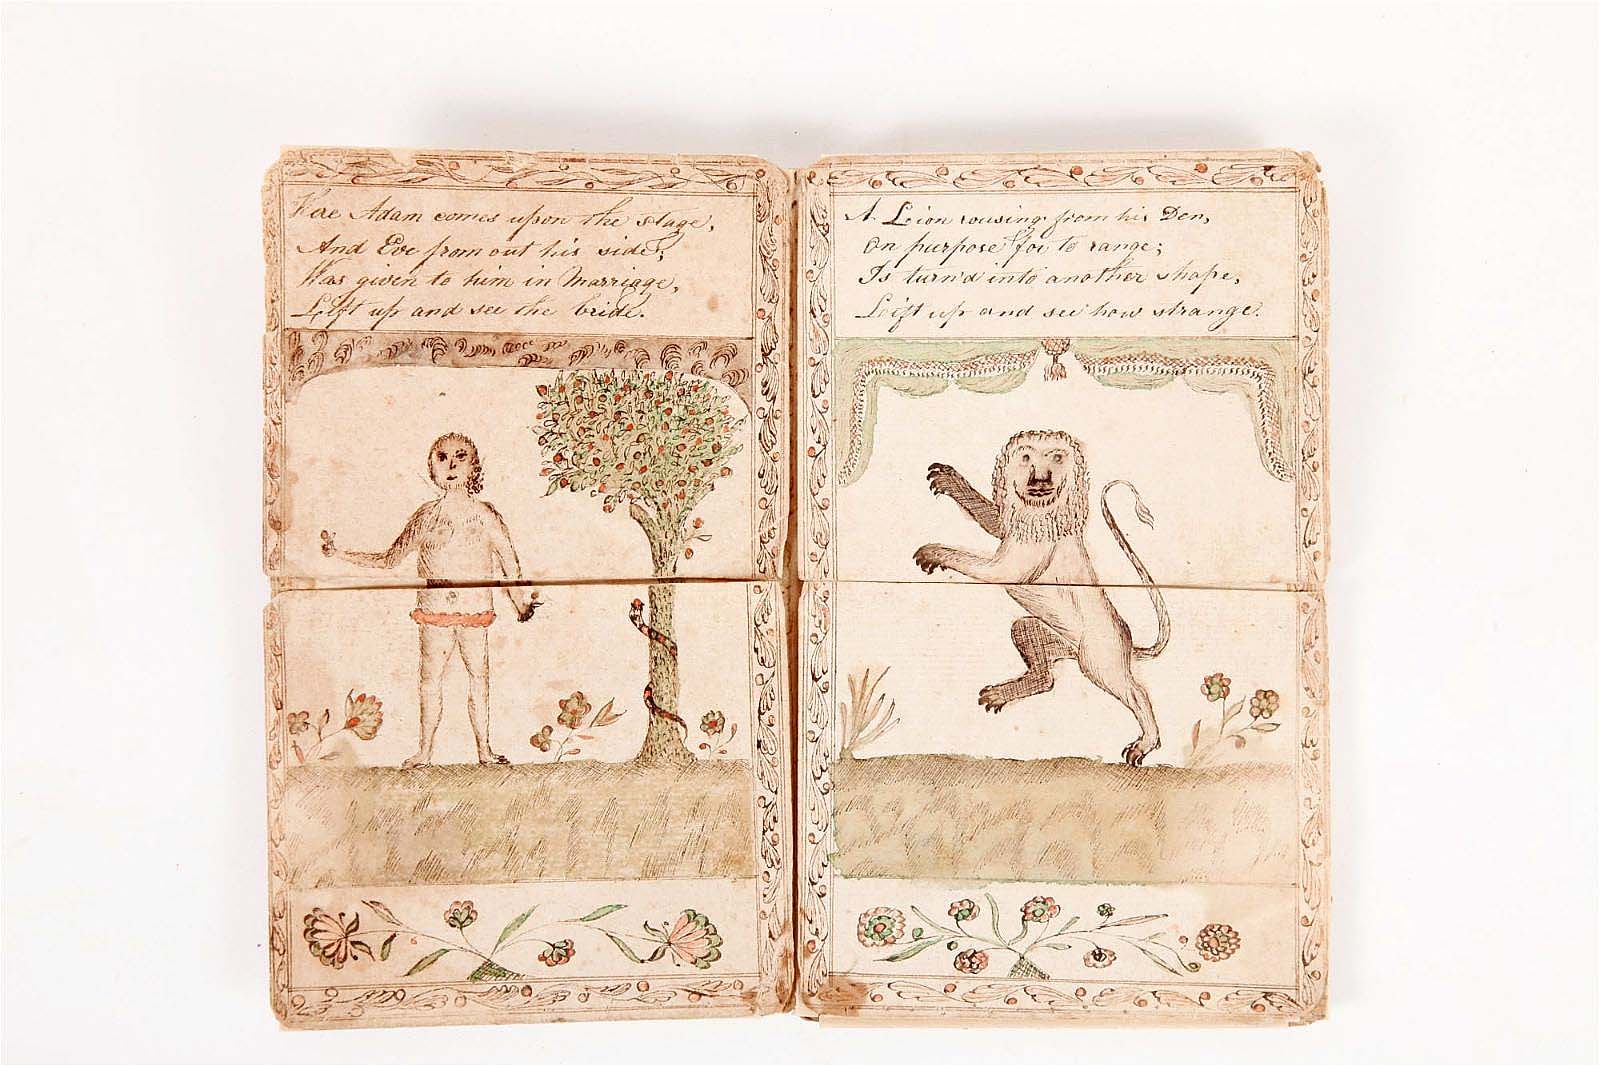 Here Adam comes upon the stage,
And Eve from out his side,
Was given to him in Marriage,
Lift up and see the bride.
A Leion rousing from his Den,
On purpose for to range;
Is turn'd into another shape,
Leift up and see how strange.